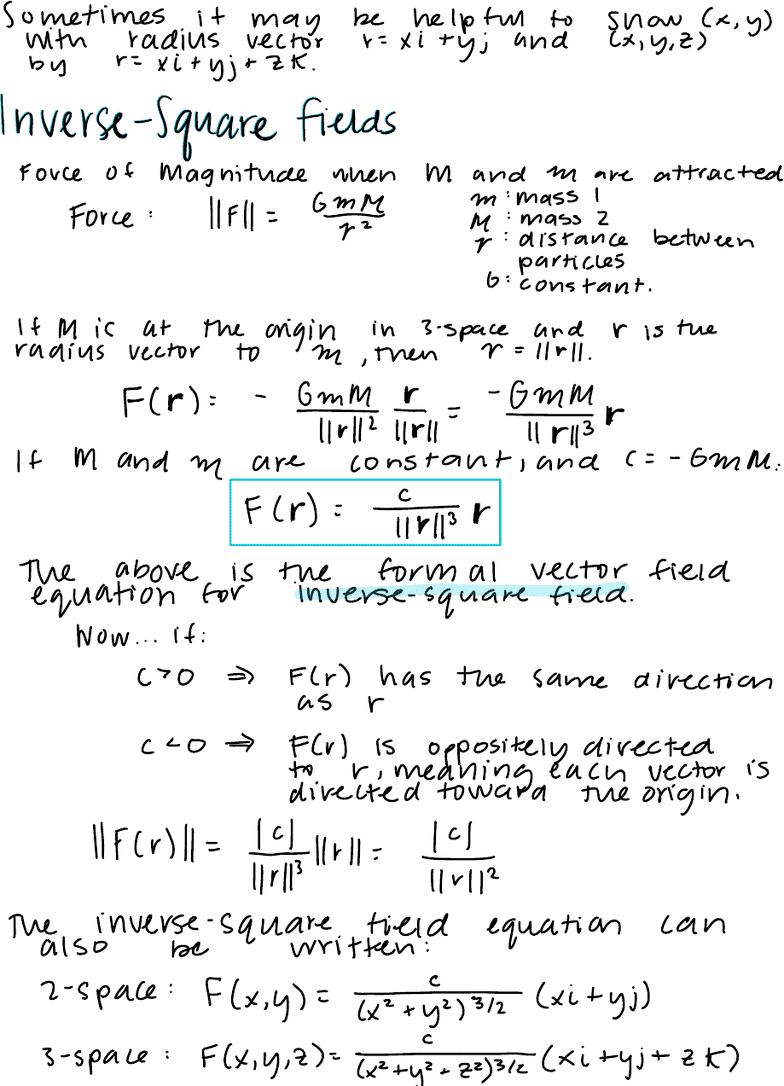 Sometimes it may be helpful to show (x, y)
with radius vector r = xi + yj and (x, y, z)
by r = xi + yj + zk.
Inverse-Square Fields
Force of Magnitude when M and m are attracted
Force : ||F|| = GmM / r²
m : mass 1
M : mass 2
r : distance between
particles
G : constant.
If M is at the origin in 3-space and r is the
radius vector to m, then r = ||r||.
F(r) : - GmM / ||r||² r / ||r|| = -GmM / ||r||³ r
If M and m are constant, and c = -GmM :
F(r) = c / ||r||³ r
The above is the formal vector field
equation for inverse-square field.
Now... if:
c > 0 ⇒ F(r) has the same direction
as r
c < 0 ⇒ F(r) is oppositely directed
to r, meaning each vector is
directed toward the origin.
||F(r)|| = |c| / ||r||³ ||r|| = |c| / ||r||²
The inverse-square field equation can
also be written:
2-space : F(x, y) = c / (x² + y²)^3/2 (xi + yj)
3-space : F(x, y, z) = c / (x² + y² + z²)^3/2 (xi + yj + zk)